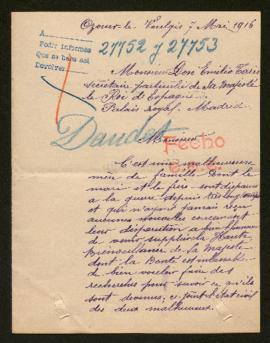 Ozouer-le-Voulgis 7 Mai 1916
A
Pedir informes
Que se hara asi
Devolver
27752 y 27753
Monsieur Don Emilio
Secrétaire particulier de sa Majesté
le Roi d'Espagne
Palais royal. Madrid.
Daudet
Fecho
Monsieur
C'est une malheureuse
mère de famille dont le
mari et le fils sont disparus
à la guerre depuis
et qui n'ayant jamais reçu
aucunes nouvelles concernant
leur disparition a
de venir supplier la Haute
Bienveillance de sa Majesté
dont la Bonté est
de bien vouloir faire des
recherches pour savoir ce qu'ils
sont devenus, ci-joint l'état civil
des deux malheureux.